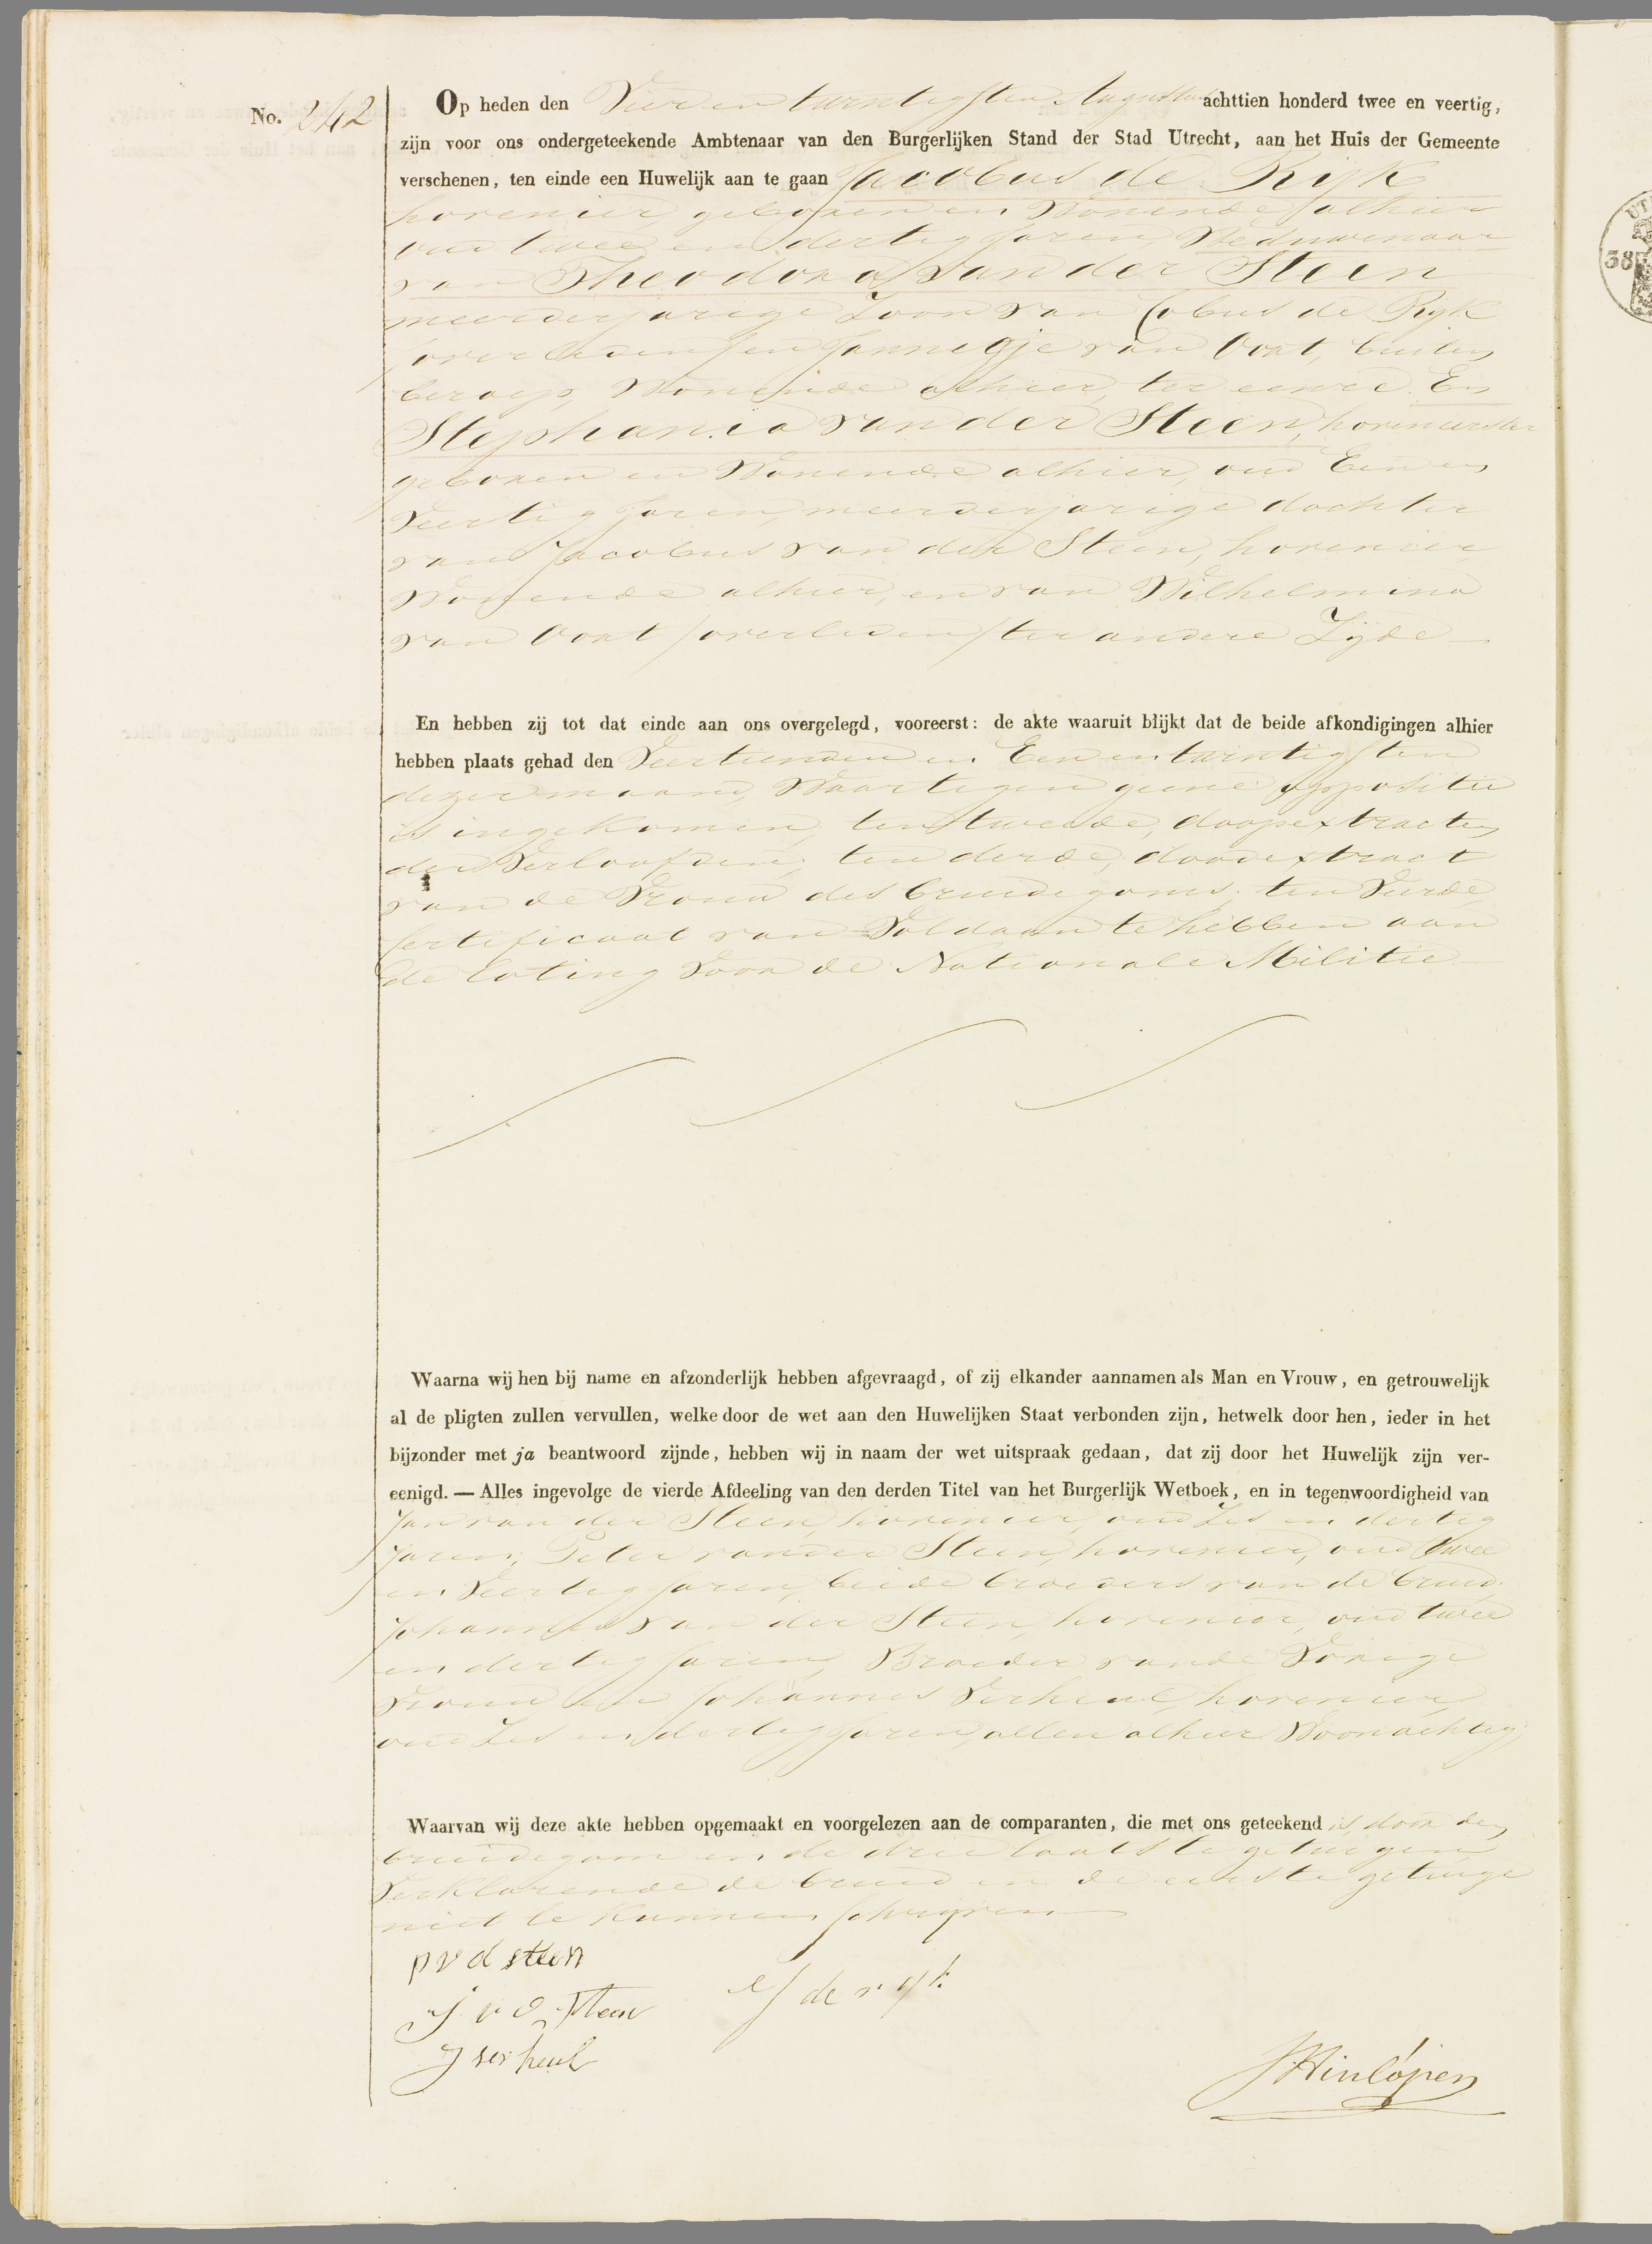 No. 242
Op heden den Vier en twintigsten Augustus achttien honderd twee en veertig,
zijn voor ons ondergeteekende Ambtenaar van den Burgerlijken Stand der Stad Utrecht, aan het Huis der Gemeente
verschenen, ten einde een Huwelijk aan te gaan Jacobus de Rijk
hovenier, geboren en Wonende alhier
oud twee en dertig Jaren, Weduwenaar
van Theodora van der Steen
meerderjarige Zoon van Cobus de Rijk
/overleden/ en Jannigje van Oort, buiten
beroep, Wonende alhier, ter eenre En
Stephania van der Steen, hovenierster
geboren en Wonende alhier, oud Een en
Veertig Jaren, meerderjarige dochter
van Jacobus van der Steen, hovenier
Wonende alhier, en van Wilhelmina
van Oort /overleden/ ter andere Zijde
En hebben zij tot dat einde aan ons overgelegd, vooreerst: de akte waaruit blijkt dat de beide afkondigingen alhier
hebben plaats gehad den Veertienden en Een en twintigsten
dezer maand, Waartegen geene oppositie
is ingekomen, ten tweede, doopextracten
der Verloofden; ten derde, doodextract
van de Vrouw des bruidegoms; ten Vierde,
Certificaat van Voldaan te hebben aan
de loting Voor de Nationale Militie
Waarna wij hen bij name en afzonderlijk hebben afgevraagd, of zij elkander aannamen als Man en Vrouw, en getrouwelijk
al de pligten zullen vervullen, welke door de wet aan den Huwelijken Staat verbonden zijn, hetwelk door hen, ieder in het
bijzonder met ja beantwoord zijnde, hebben wij in naam der wet uitspraak gedaan, dat zij door het Huwelijk zijn ver-
eenigd. — Alles ingevolge de vierde Afdeeling van den derden Titel van het Burgerlijk Wetboek, en in tegenwoordigheid van
Jan van der Steen, hovenier, oud Zes en dertig
Jaren; Peter van der Steen, hovenier, oud twee
en Veertig Jaren, beide broeders van de bruid.
Johannes van der Steen, hovenier, oud twee
en dertig Jaren, Broeder van de Vorige
Vrouw en Johannes Verheul, hovenier,
oud Zes en dertig Jaren, allen alhier Woonachtig
Waarvan wij deze akte hebben opgemaakt en voorgelezen aan de comparanten, die met ons geteekend is, door den
bruidegom en de drie laatste getuigen
Verklarende de bruid en de eerste getuige
niet te kunnen schrijven
p v d steen
J v d Steen
J de rijk
J verheul
JHinlopen
38
UT